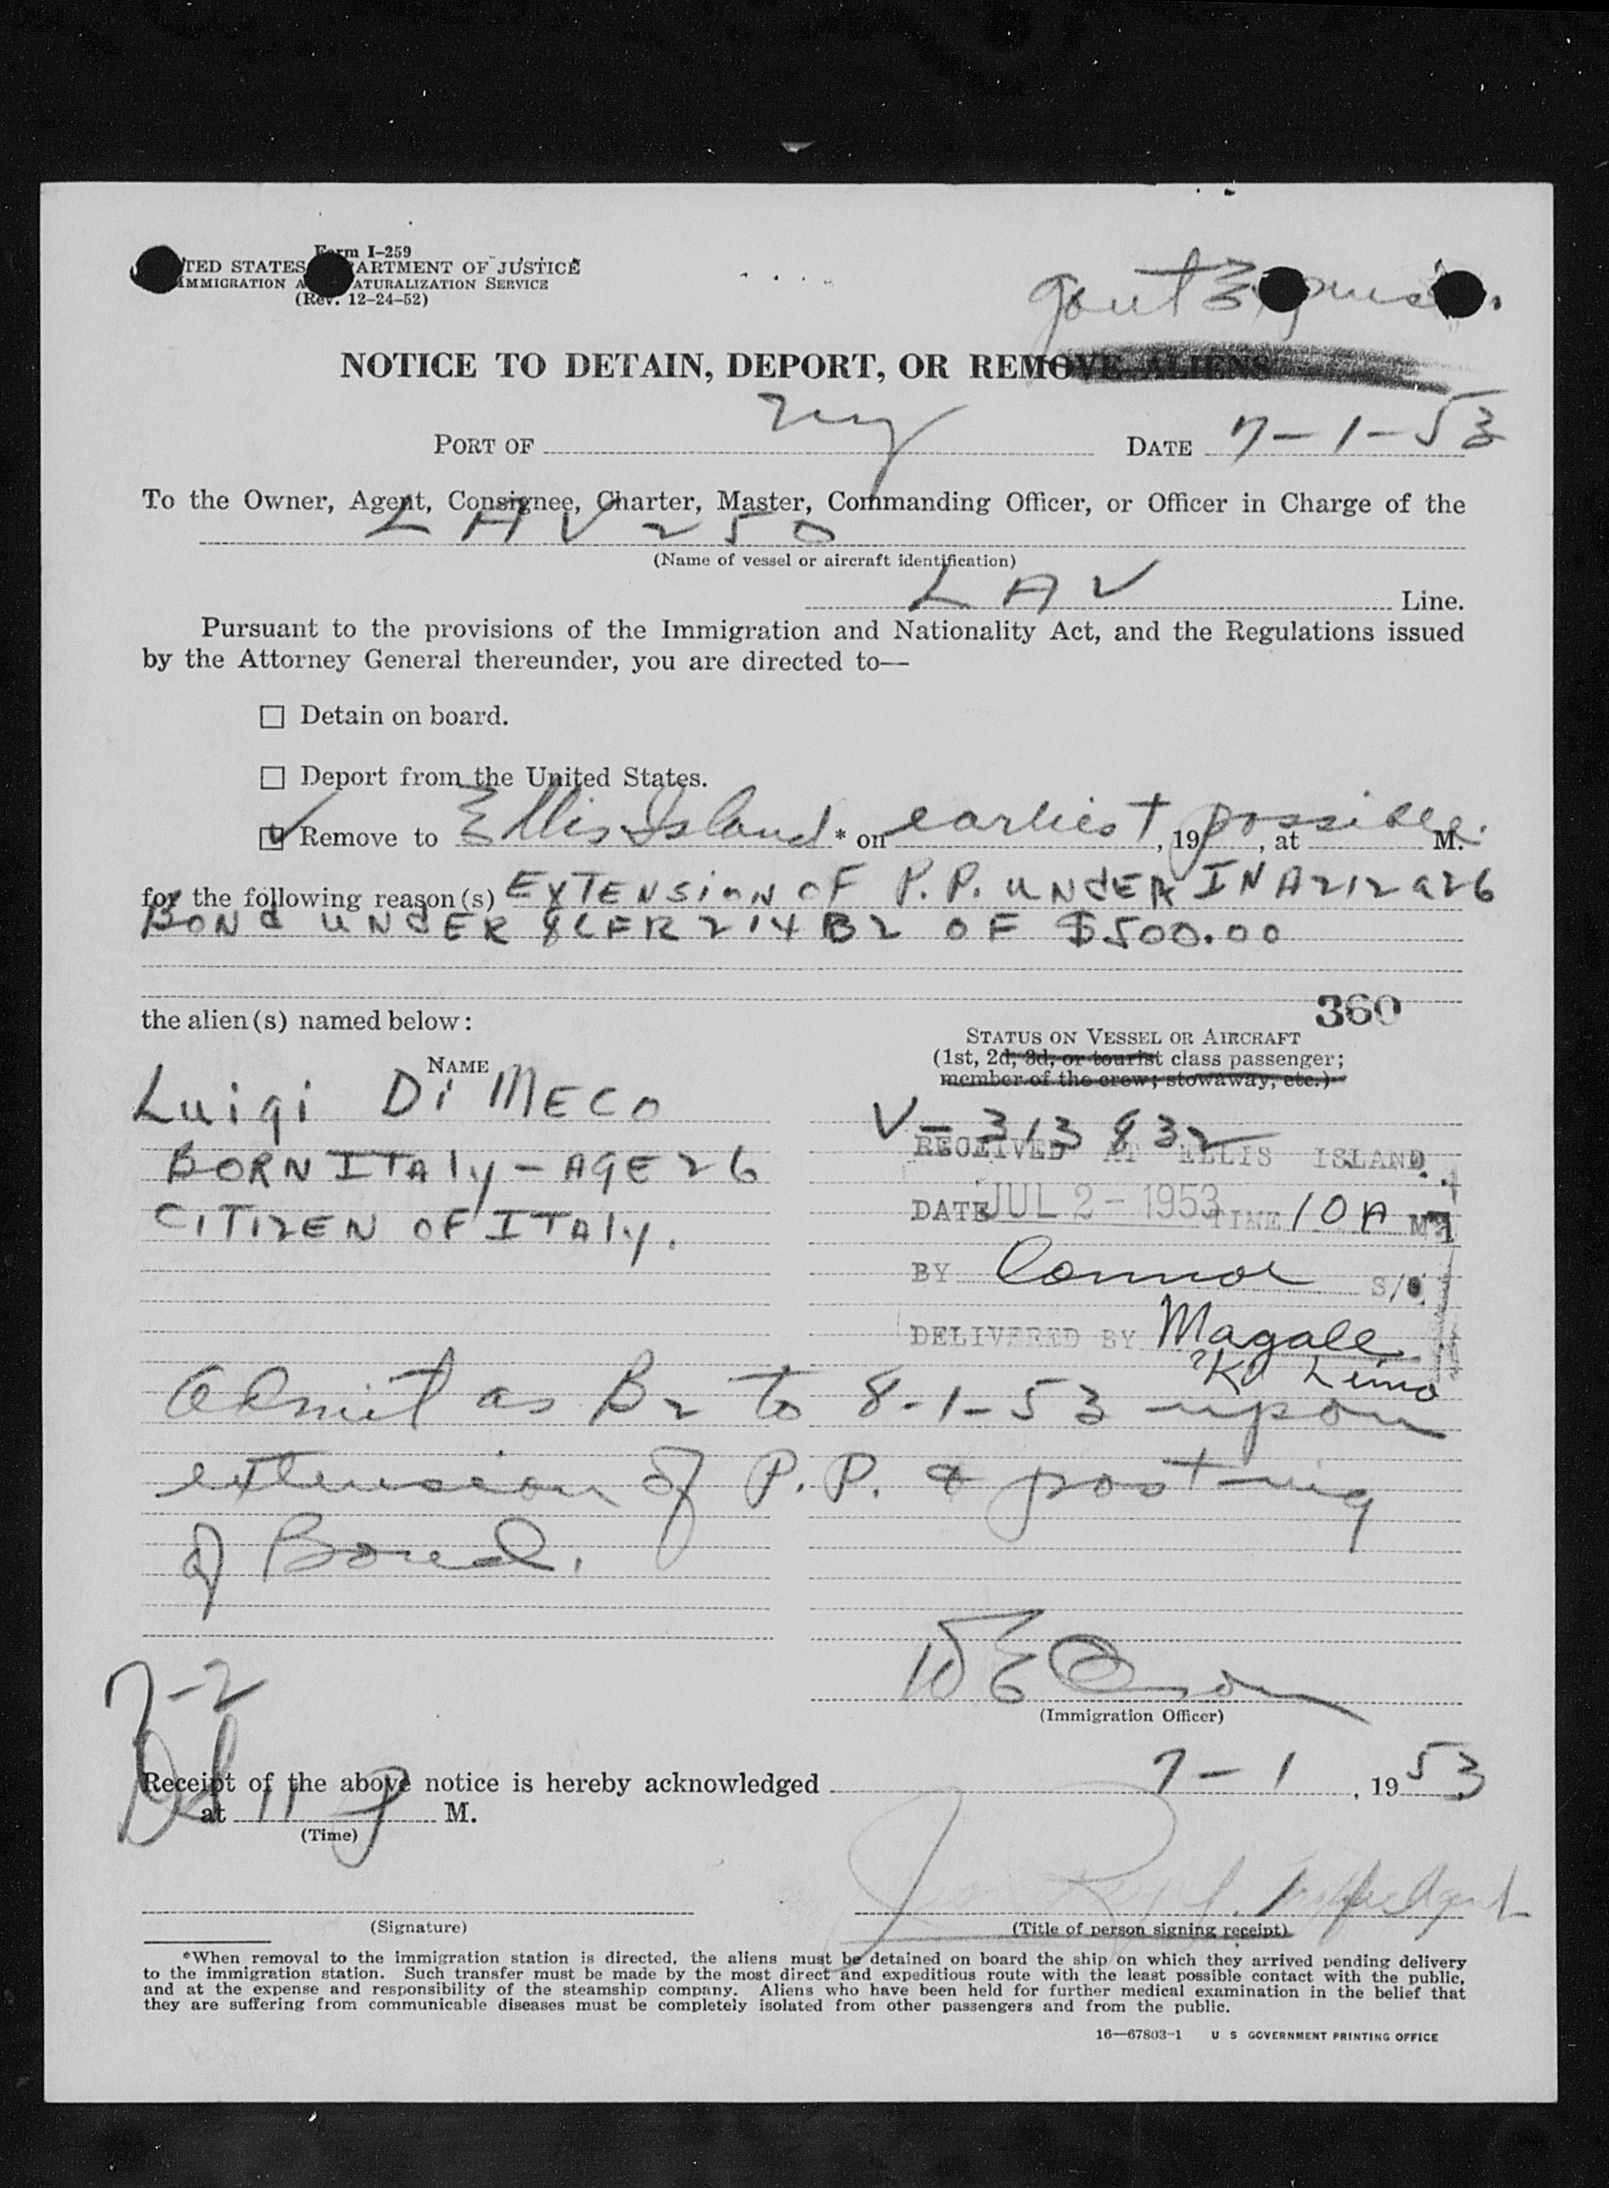 Form I-259
UNITED STATES DEPARTMENT OF JUSTICE
IMMIGRATION AND NATURALIZATION SERVICE
(Rev. 12-24-52)
Gov't
NOTICE TO DETAIN, DEPORT, OR REMOVE ALIENS
PORT OF NY DATE 7-1-53
To the Owner, Agent, Consignee, Charter, Master, Commanding Officer, or Officer in Charge of the
LAV 250
(Name of vessel or aircraft identification)
LAV Line.
Pursuant to the provisions of the Immigration and Nationality Act, and the Regulations issued
by the Attorney General thereunder, you are directed to—
Detain on board.
Deport from the United States.
Remove to Ellis Island * on earliest, 19 possible, at M.
for the following reason(s) EXTENSION OF P.P. UNDER INA 212 a 26
BOND UNDER 8CFR 214 B2 OF $500.00
360
the alien(s) named below:
STATUS ON VESSEL OR AIRCRAFT
(1st, 2d, 3d, or tourist class passenger;
member of the crew; stowaway, etc.)
NAME
Luigi Di MECO
V-313832
BORN ITALY - AGE 26
RECEIVED AT ELLIS ISLAND
CITIZEN OF ITALY.
DATE JUL 2 - 1953 TIME 10 A M
BY Connor S/O
DELIVERED BY Magale
Limo
Admit as B2 to 8-1-53 upon
extension of P.P. & posting
of Bond.
(Immigration Officer)
7-2
Receipt of the above notice is hereby acknowledged 7-1, 1953
at 11 P M.
(Time)
(Signature)
(Title of person signing receipt)
*When removal to the immigration station is directed, the aliens must be detained on board the ship on which they arrived pending delivery
to the immigration station. Such transfer must be made by the most direct and expeditious route with the least possible contact with the public,
and at the expense and responsibility of the steamship company. Aliens who have been held for further medical examination in the belief that
they are suffering from communicable diseases must be completely isolated from other passengers and from the public.
16—67803-1 U S GOVERNMENT PRINTING OFFICE